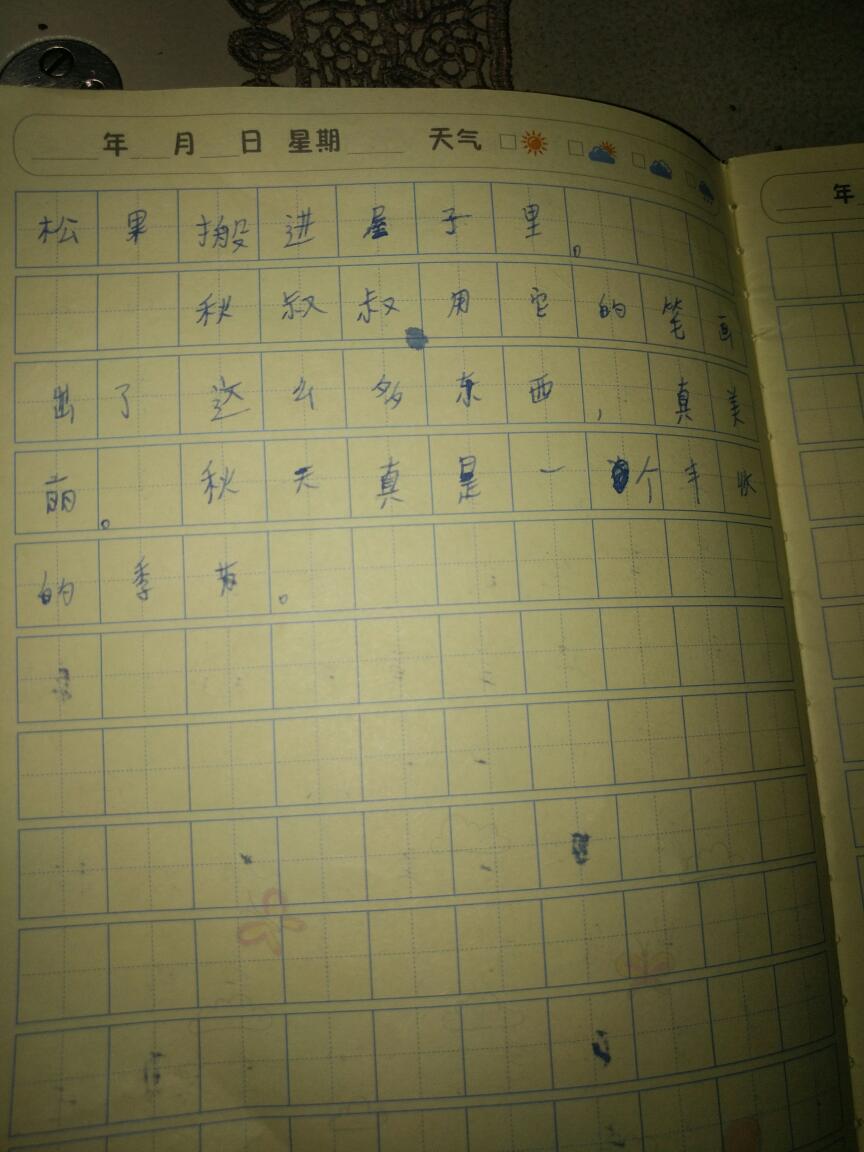 年 月 日 星期 天气
松果搬进屋子里。
秋叔叔用它的笔画
出了这么多东西，真美
丽。秋天真是一个丰收
的季节。
年